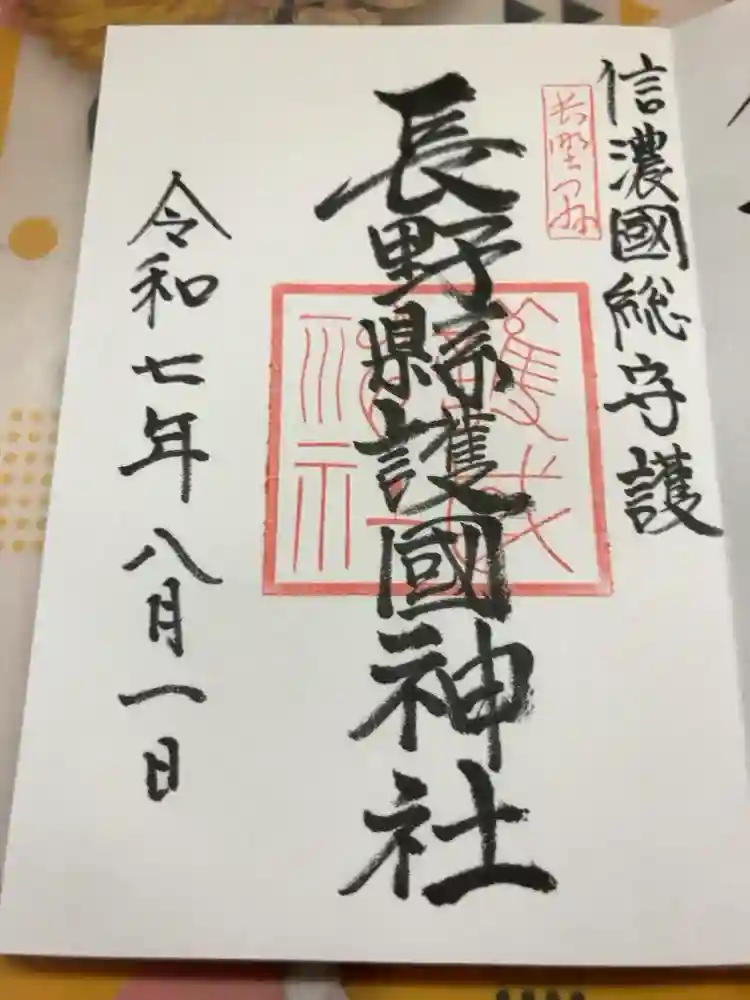 信濃國総守護
長野縣
長野縣護國神社
令和七年八月一日